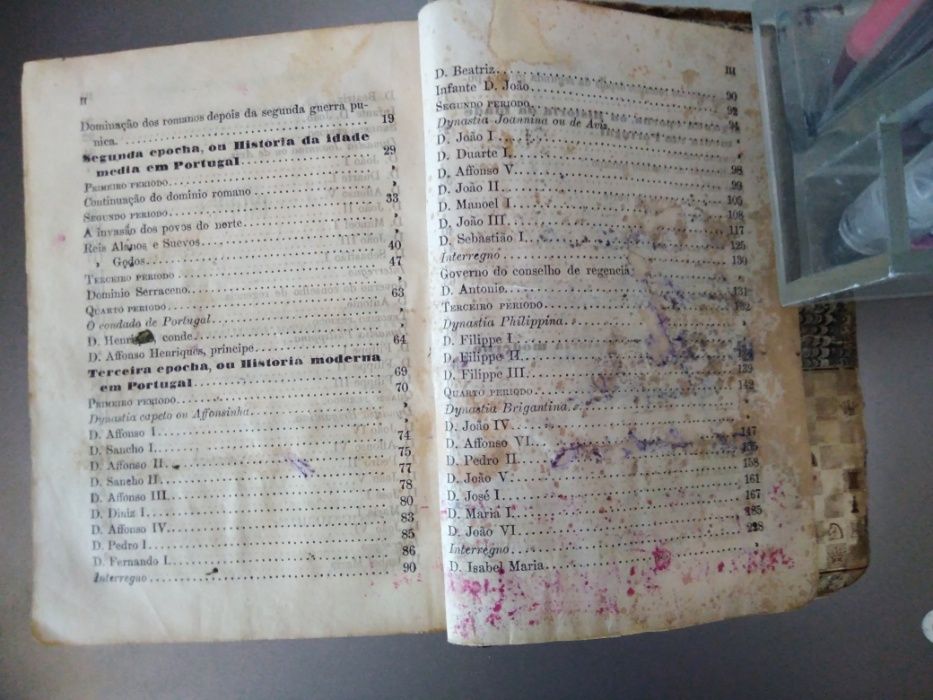 II
Dominação dos romanos depois da segunda guerra pu-
nica. ........ 19
Segunda epocha, ou Historia da idade
media em Portugal ........ 29
PRIMEIRO PERIODO ........ »
Continuação do dominio romano ........ »
SEGUNDO PERIODO ........ 33
A invasão dos povos do norte ........ »
Reis Alanos e Suevos ........ »
» Godos ........ 40
TERCEIRO PERIODO ........ 47
Dominio Serraceno ........ »
QUARTO PERIODO ........ 63
O condado de Portugal ........ »
D. Henrique, conde ........ »
D. Affonso Henriques, principe ........ 64
Terceira epocha, ou Historia moderna
em Portugal ........ 69
PRIMEIRO PERIODO ........ 70
Dynastia capeto ou Affonsinha ........ »
D. Affonso I ........ »
D. Sancho I ........ 74
D. Affonso II ........ 75
D. Sancho II ........ 77
D. Affonso III ........ 78
D. Diniz I ........ 80
D. Affonso IV ........ 83
D. Pedro I ........ 85
D. Fernando I ........ 86
Interregno ........ 90
III
D. Beatriz ........
Infante D. João ........ 90
SEGUNDO PERIODO ........ 92
Dynastia Joannina ou de Aviz ........ 94
D. João I ........ »
D. Duarte I ........ »
D. Affonso V ........ 98
D. João II ........ 99
D. Manoel I ........ 105
D. João III ........ 108
D. Sebastião I ........ 117
Interregno ........ 125
Governo do conselho de regencia ........ 130
D. Antonio ........ »
TERCEIRO PERIODO ........ 131
Dynastia Philippina ........ 132
D. Filippe I ........
D. Filippe II ........ 138
D. Filippe III ........ 139
QUARTO PERIODO ........ 142
Dynastia Brigantina ........
D. João IV ........ 147
D. Affonso VI ........ 155
D. Pedro II ........ 158
D. João V ........ 161
D. José I ........ 167
D. Maria I ........ 185
D. João VI ........ 228
Interregno ........
D. Isabel Maria ........